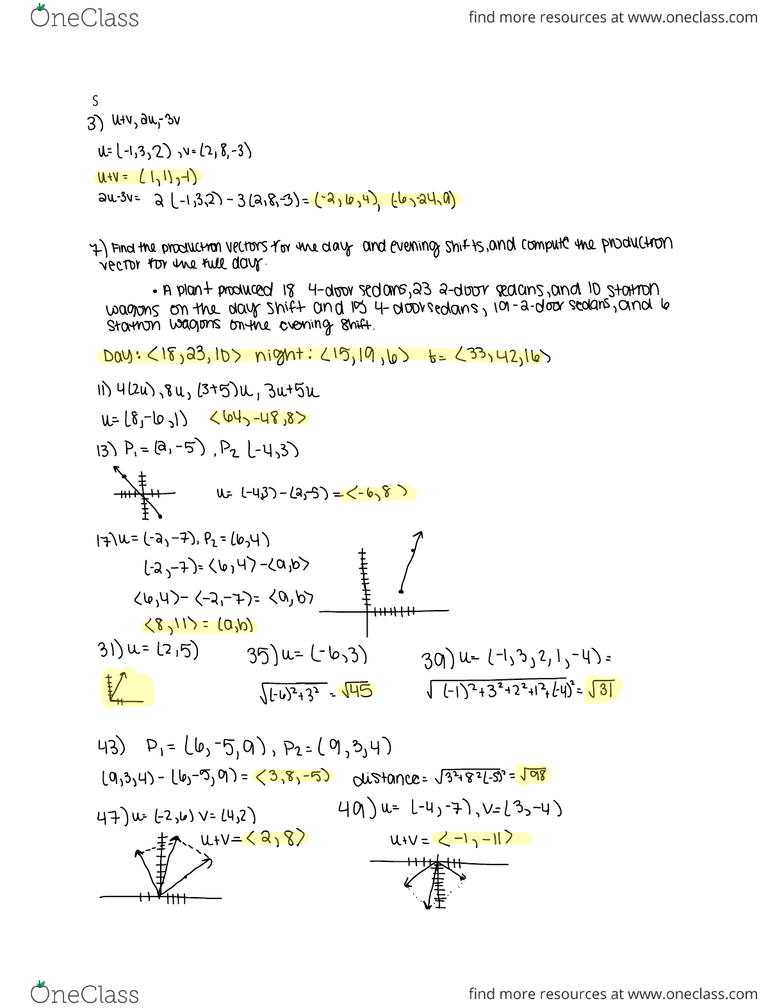 OneClass
find more resources at www.oneclass.com
S
3) u+v, 2u,-3v
u=(-1,3,2), v=(2,8,-3)
u+v= (1,11,-1)
2u-3v= 2(-1,3,2)-3(2,8,-3)=(-2,6,4), (-6,-24,9)
7) Find the production vectors for the day and evening shifts, and compute the production
vector for the full day.
• A plant produced 18 4-door sedans, 23 2-door sedans, and 10 station
wagons on the day shift and 15 4-door sedans, 19-2-door sedans, and 6
station wagons on the evening shift.
Day: <18,23,10> night: <15,19,6> t= <33,42,16>
11) 4(2u), 8u, (3+5)u, 3u+5u
u=(8,-6,1) <64,-48,8>
13) P₁=(2,-5), P₂(-4,3)
u= (-4,3)-(2,-5)=<-6,8>
17) u=(-2,-7), P₂=(6,4)
(-2,-7)=<6,4>-<a,b>
<6,4>-<-2,-7>=<a,b>
<8,11>=(a,b)
31) u=(2,5) 35) u=(-6,3) 39) u= (-1,3,2,1,-4)=
√(-6)²+3² = √45 √(-1)²+3²+2²+1²+(-4)² = √31
43) P₁=(6,-5,9), P₂=(9,3,4)
(9,3,4)-(6,-5,9)=<3,8,-5> distance= √3²+8²(-5)² = √98
47) u= (-2,6) v=(4,2) 49) u= (-4,-7), v=(3,-4)
u+v=<2,8> u+v= <-1,-11>
OneClass
find more resources at www.oneclass.com